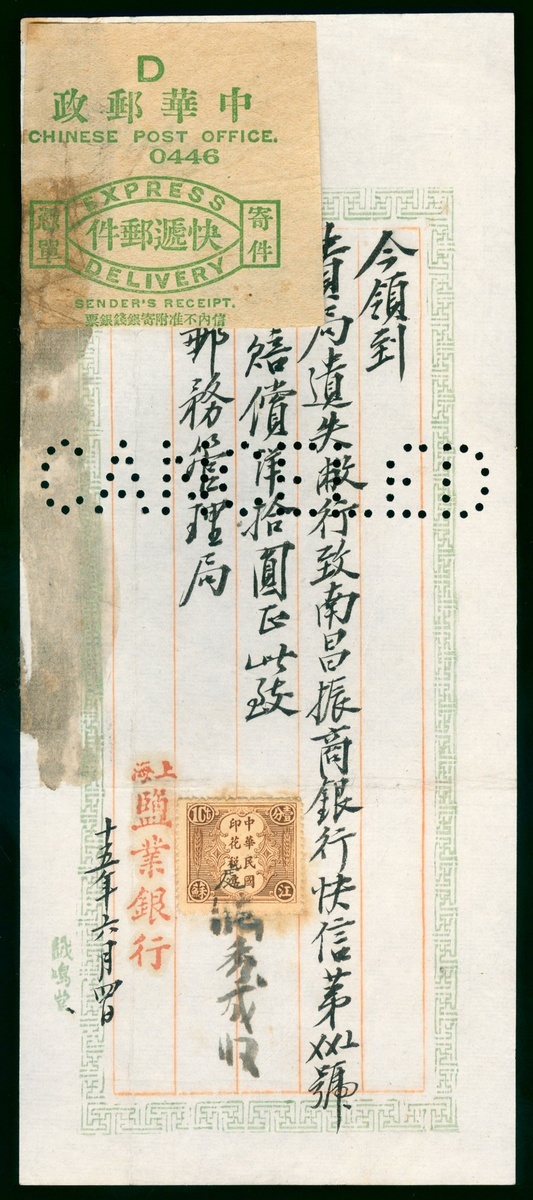 D
政郵華中
CHINESE POST OFFICE.
0446
EXPRESS
件郵遞快
DELIVERY
寄件
單
SENDER'S RECEIPT.
票銀錢銀寄附准不內信
今領到
局遺失敝行致南昌振商銀行快信第〤〤〢號
賠償洋拾圓正此致
郵務管理局
CANCELLED
中華民國
印花稅
江
蘇
壹分
1
上海
鹽業銀行
收
十五年六月四日